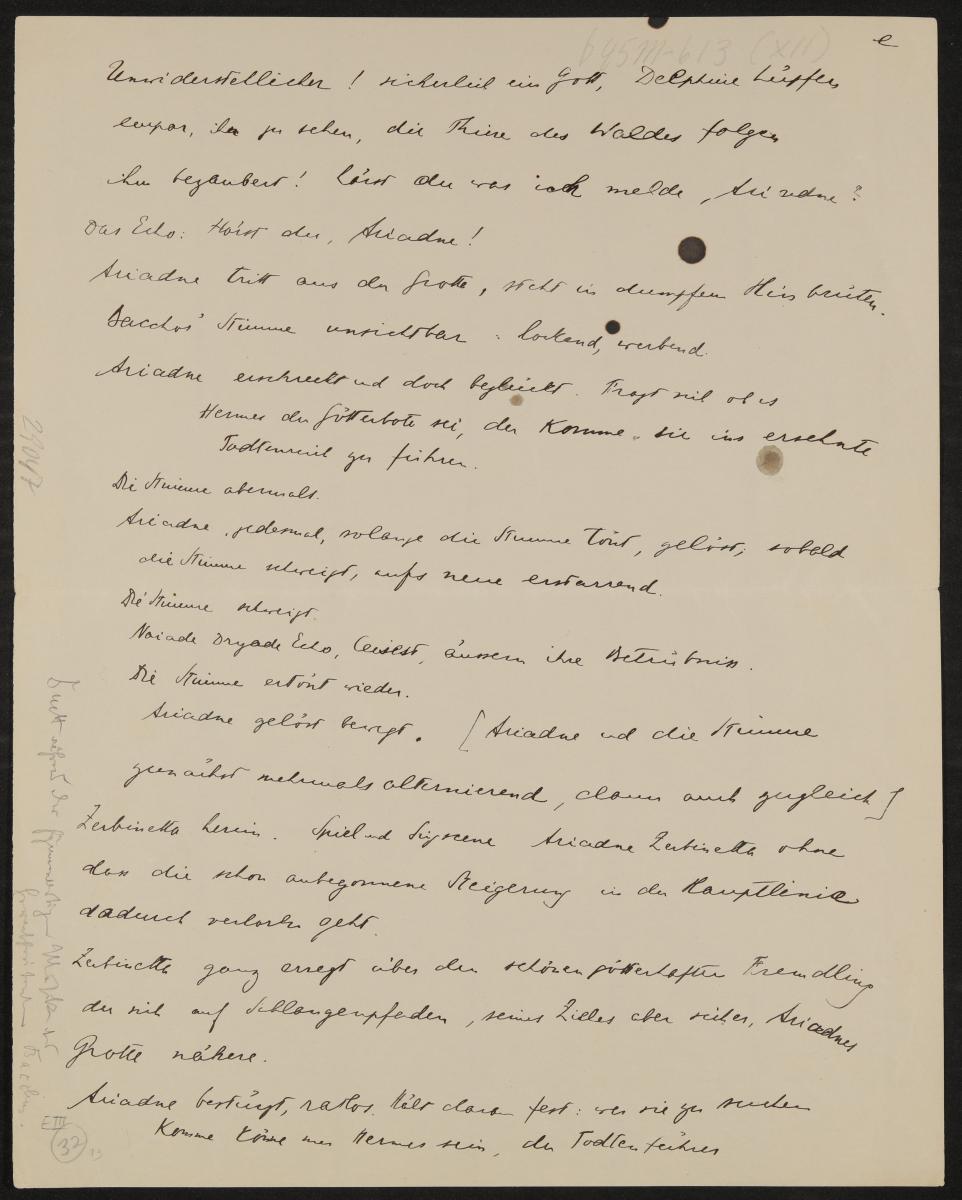 e
Unwiderstehlicher! sicherlich ein Gott, Delphine lüpfen
empor, ihn zu sehen, die Thiere des Waldes folgen
ihm bezaubert! hörst du was ich melde, Ariadne?
Das Echo: Hörst du, Ariadne!
Ariadne tritt aus der Grotte, steht in dumpfem Hinbrüten.
Bacchos' Stimme unsichtbar: lockend, werbend.
Ariadne erschreckt und doch beglückt. Fragt sich ob es
Hermes der Götterbote sei, der komme, sie ins ersehnte
Todtenreich zu führen.
Die Stimme abermals.
Ariadne, jedesmal, solange die Stimme tönt, gelöst; sobald
die Stimme schweigt, aufs neue erstarrend.
Die Stimme schweigt.
Naiade Dryade Echo, leisest, äussern ihre Betrübniss.
Die Stimme ertönt wieder.
Ariadne gelöst bewegt. [Ariadne und die Stimme
zunächst mehrmals alternierend, dann auch zugleich]
Zerbinetta herein. Spiel und Singscene Ariadne Zerbinetta ohne
dass die schon anbegonnene Steigerung in der Hauptlinie
dadurch verloren geht.
Zerbinetta ganz erregt über den schönen götterhaften Fremdling
der sich auf Schlangenpfaden, seines Zieles aber sicher, Ariadnes
Grotte nähere.
Ariadne bestürzt, ratlos. Hält daran fest: wer sie zu suchen
komme könne nur Hermes sein, der Todtenführer
29047
III
32